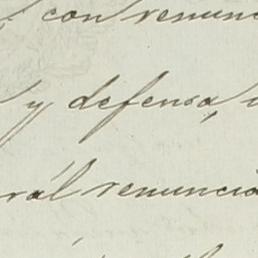 con renunc
y defensa,
rál renuncia